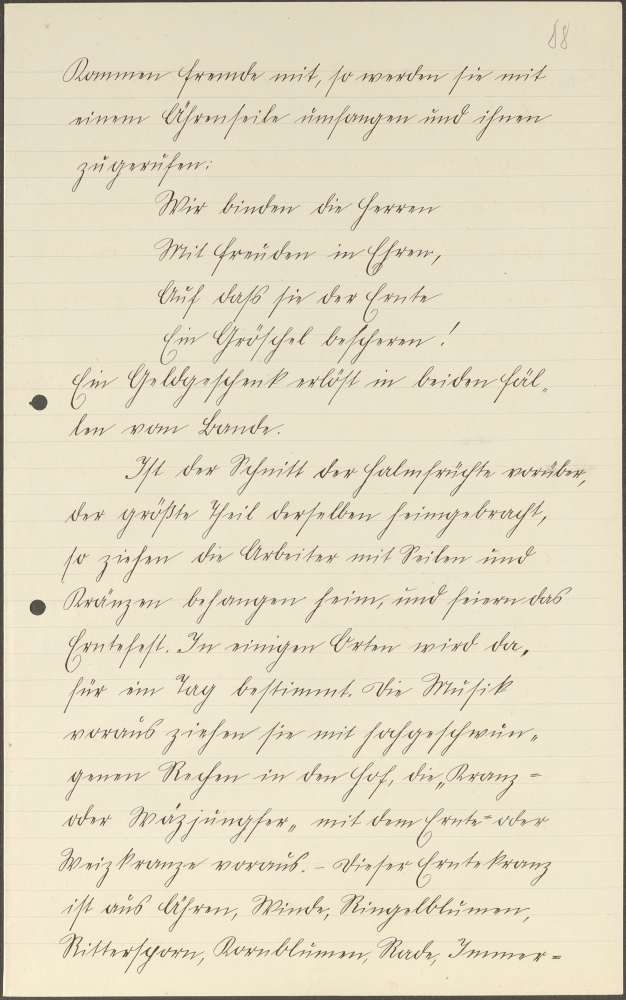 88
Kommen Fremde mit, so werden sie mit
einem Ährenseile umfangen und ihnen
zugerufen:
Wir binden die Herren
Mit Freuden in Ehren,
Auf daß sie der Ernte
Ein Gröschel bescheren!
Ein Geldgeschenk erlöst in beiden Fäl-
len vom Bande.
Ist der Schnitt der Halmfrüchte vorüber,
der größte Theil derselben heimgebracht,
so ziehen die Arbeiter mit Seilen und
Kränzen behangen heim, und feiern das
Erntefest. In einigen Orten wird da-
für ein Tag bestimmt. Die Musik
voraus ziehen sie mit hochgeschwun-
genen Rechen in den Hof, die „Kranz-
oder Wäzjungfer„ mit dem Ernte- oder
Weizkranze voraus. – Dieser Erntekranz
ist aus Ähren, Winde, Ringelblumen,
Rittersporn, Kornblumen, Rade, Immer-